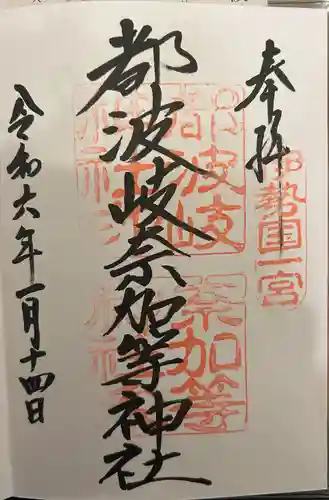 奉拝
伊勢国一宮
都波岐奈加等神社
都波岐
奈加等
令和六年一月十四日